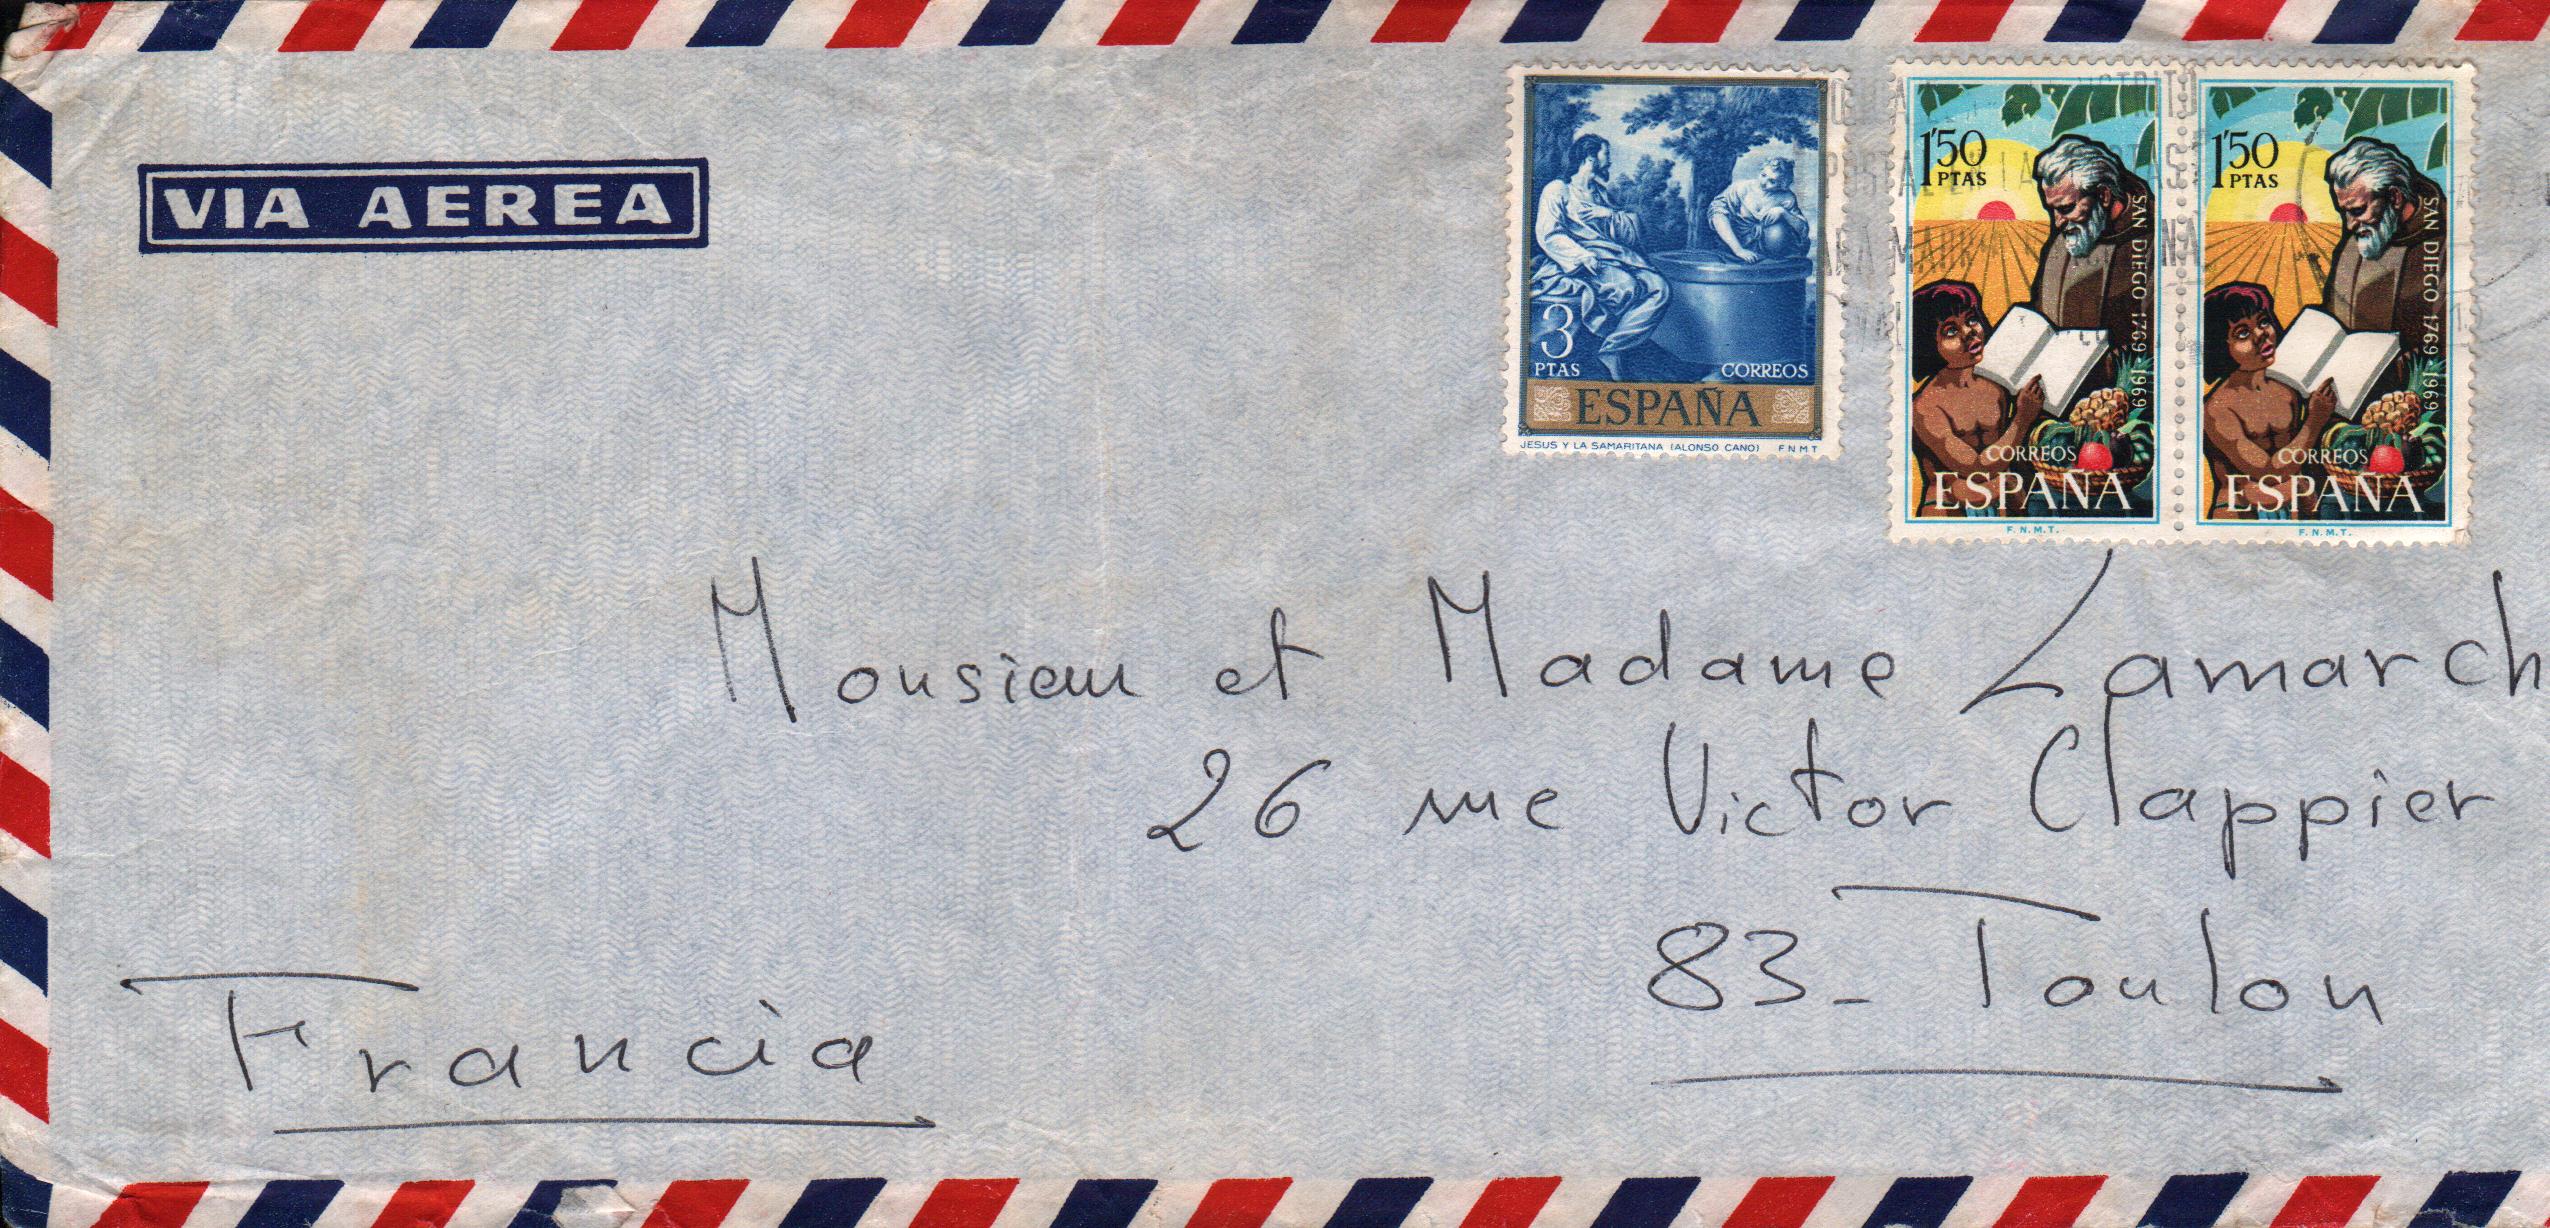 VIA AEREA
3
PTAS
CORREOS
ESPAÑA
JESUS Y LA SAMARITANA (ALONSO CANO) F N M T
1'50
PTAS
SAN DIEGO 1769-1969
CORREOS
ESPAÑA
F.N.M.T.
1'50
PTAS
SAN DIEGO 1769-1969
CORREOS
ESPAÑA
F.N.M.T.
Monsieur et Madame Lamarch
26 rue Victor Clappier
83_ Toulon
Francia